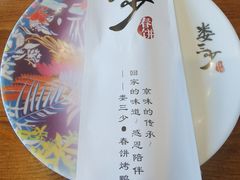 少
春饼
京味的传承
回家的味道/感恩陪伴
——娄三少·春饼烤鸭
娄三少